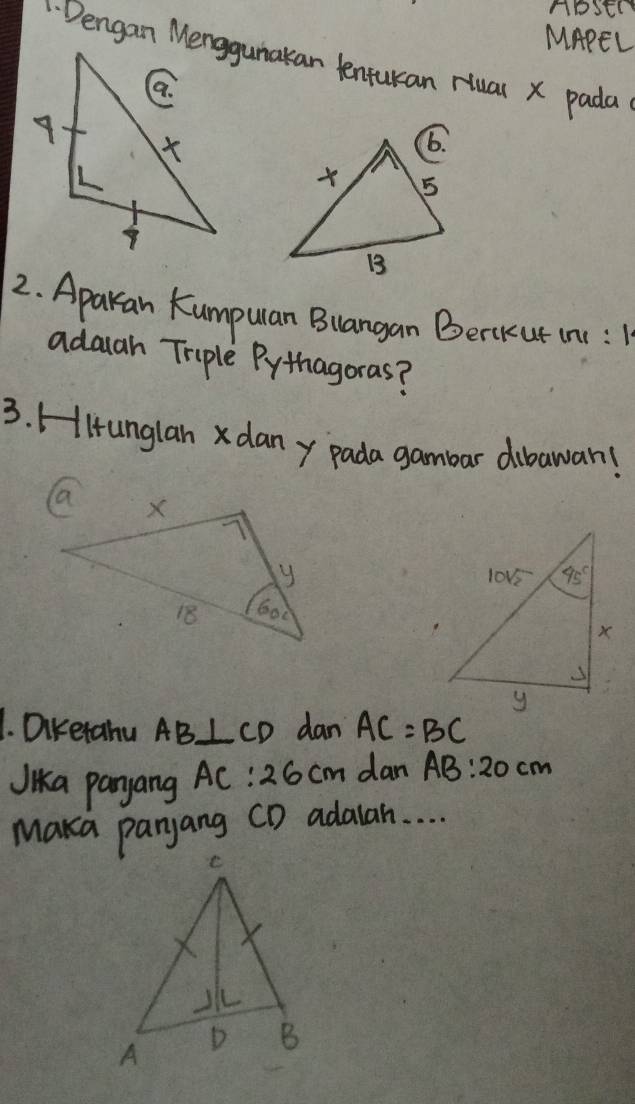 ABSEN
MAPEL
1. Dengan Menggunakan tentukan Nilai x pada
a.
9
x
9
b.
x
5
13
2. Apakah Kumpulan Bilangan Berikut ini :
adalah Triple Pythagoras?
3. Hitunglah x dan y pada gambar dibawah!
a
x
y
18
60°
10√2
45°
x
y
1. Diketahu AB ⊥ CD dan AC = BC
Jika panjang AC : 26 cm dan AB : 20 cm
Maka panjang CD adalah....
C
A
D
B